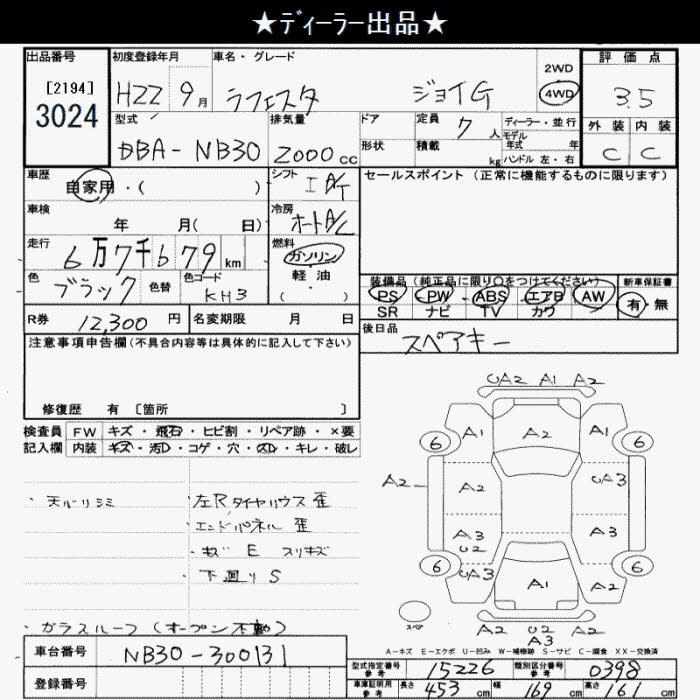 ★ディーラー出品★
出品番号
[2194]
3024
初度登録年月
H22 9月
車名・グレード
ラフェスタ ジョイG
2WD
4WD
評価点
3.5
型式
DBA-NB30
排気量
2000cc
ドア
形状
定員 7人
積載 kg
ディーラー・並行
モデル
年式 年
ハンドル 左・右
外装 内装
C C
車歴
自家用・( )
シフト
IA/T
セールスポイント (正常に機能するものに限ります)
車検
年 月( 日)
冷房
オートA/C
走行
6万7千679km
燃料
ガソリン
軽・油
( ・ )
色
ブラック
色替
色コード
KH3
装備品 (純正品に限り○をつけてください)
PS PW ABS エアB AW
SR ナビ TV カワ
新車保証書
有・無
R券 12,300円
名変期限 月 日
後日品
スペアキー
注意事項申告欄(不具合内容等は具体的に記入して下さい)
修復歴 有 [箇所 ]
検査員 FW キズ・飛石・ヒビ割・リペア跡・×要
記入欄 内装 キズ・汚D・コゲ・穴・スレ・キレ・破レ
・天バリシミ
・左Rタイヤハウス歪
・エンドパネル歪
・キズ E スリキズ
・下廻りS
・ガラスルーフ(オープン不動)
UA2 A1 A2
6 A1 A2 A1 6
A2 A2 UA3
A3 U2 A3
6 UA3 A1 A2 6
スペア
A2 U2 A2
A3
A-キズ E-エクボ U-凹み W-補修跡 S-サビ C-腐食 XX-交換済
車台番号 NB30-300131
登録番号
型式指定番号 参考 15226
類別区分番号 参考 0398
車庫証明用 参考 長さ 453cm 幅 169cm 高さ 161cm